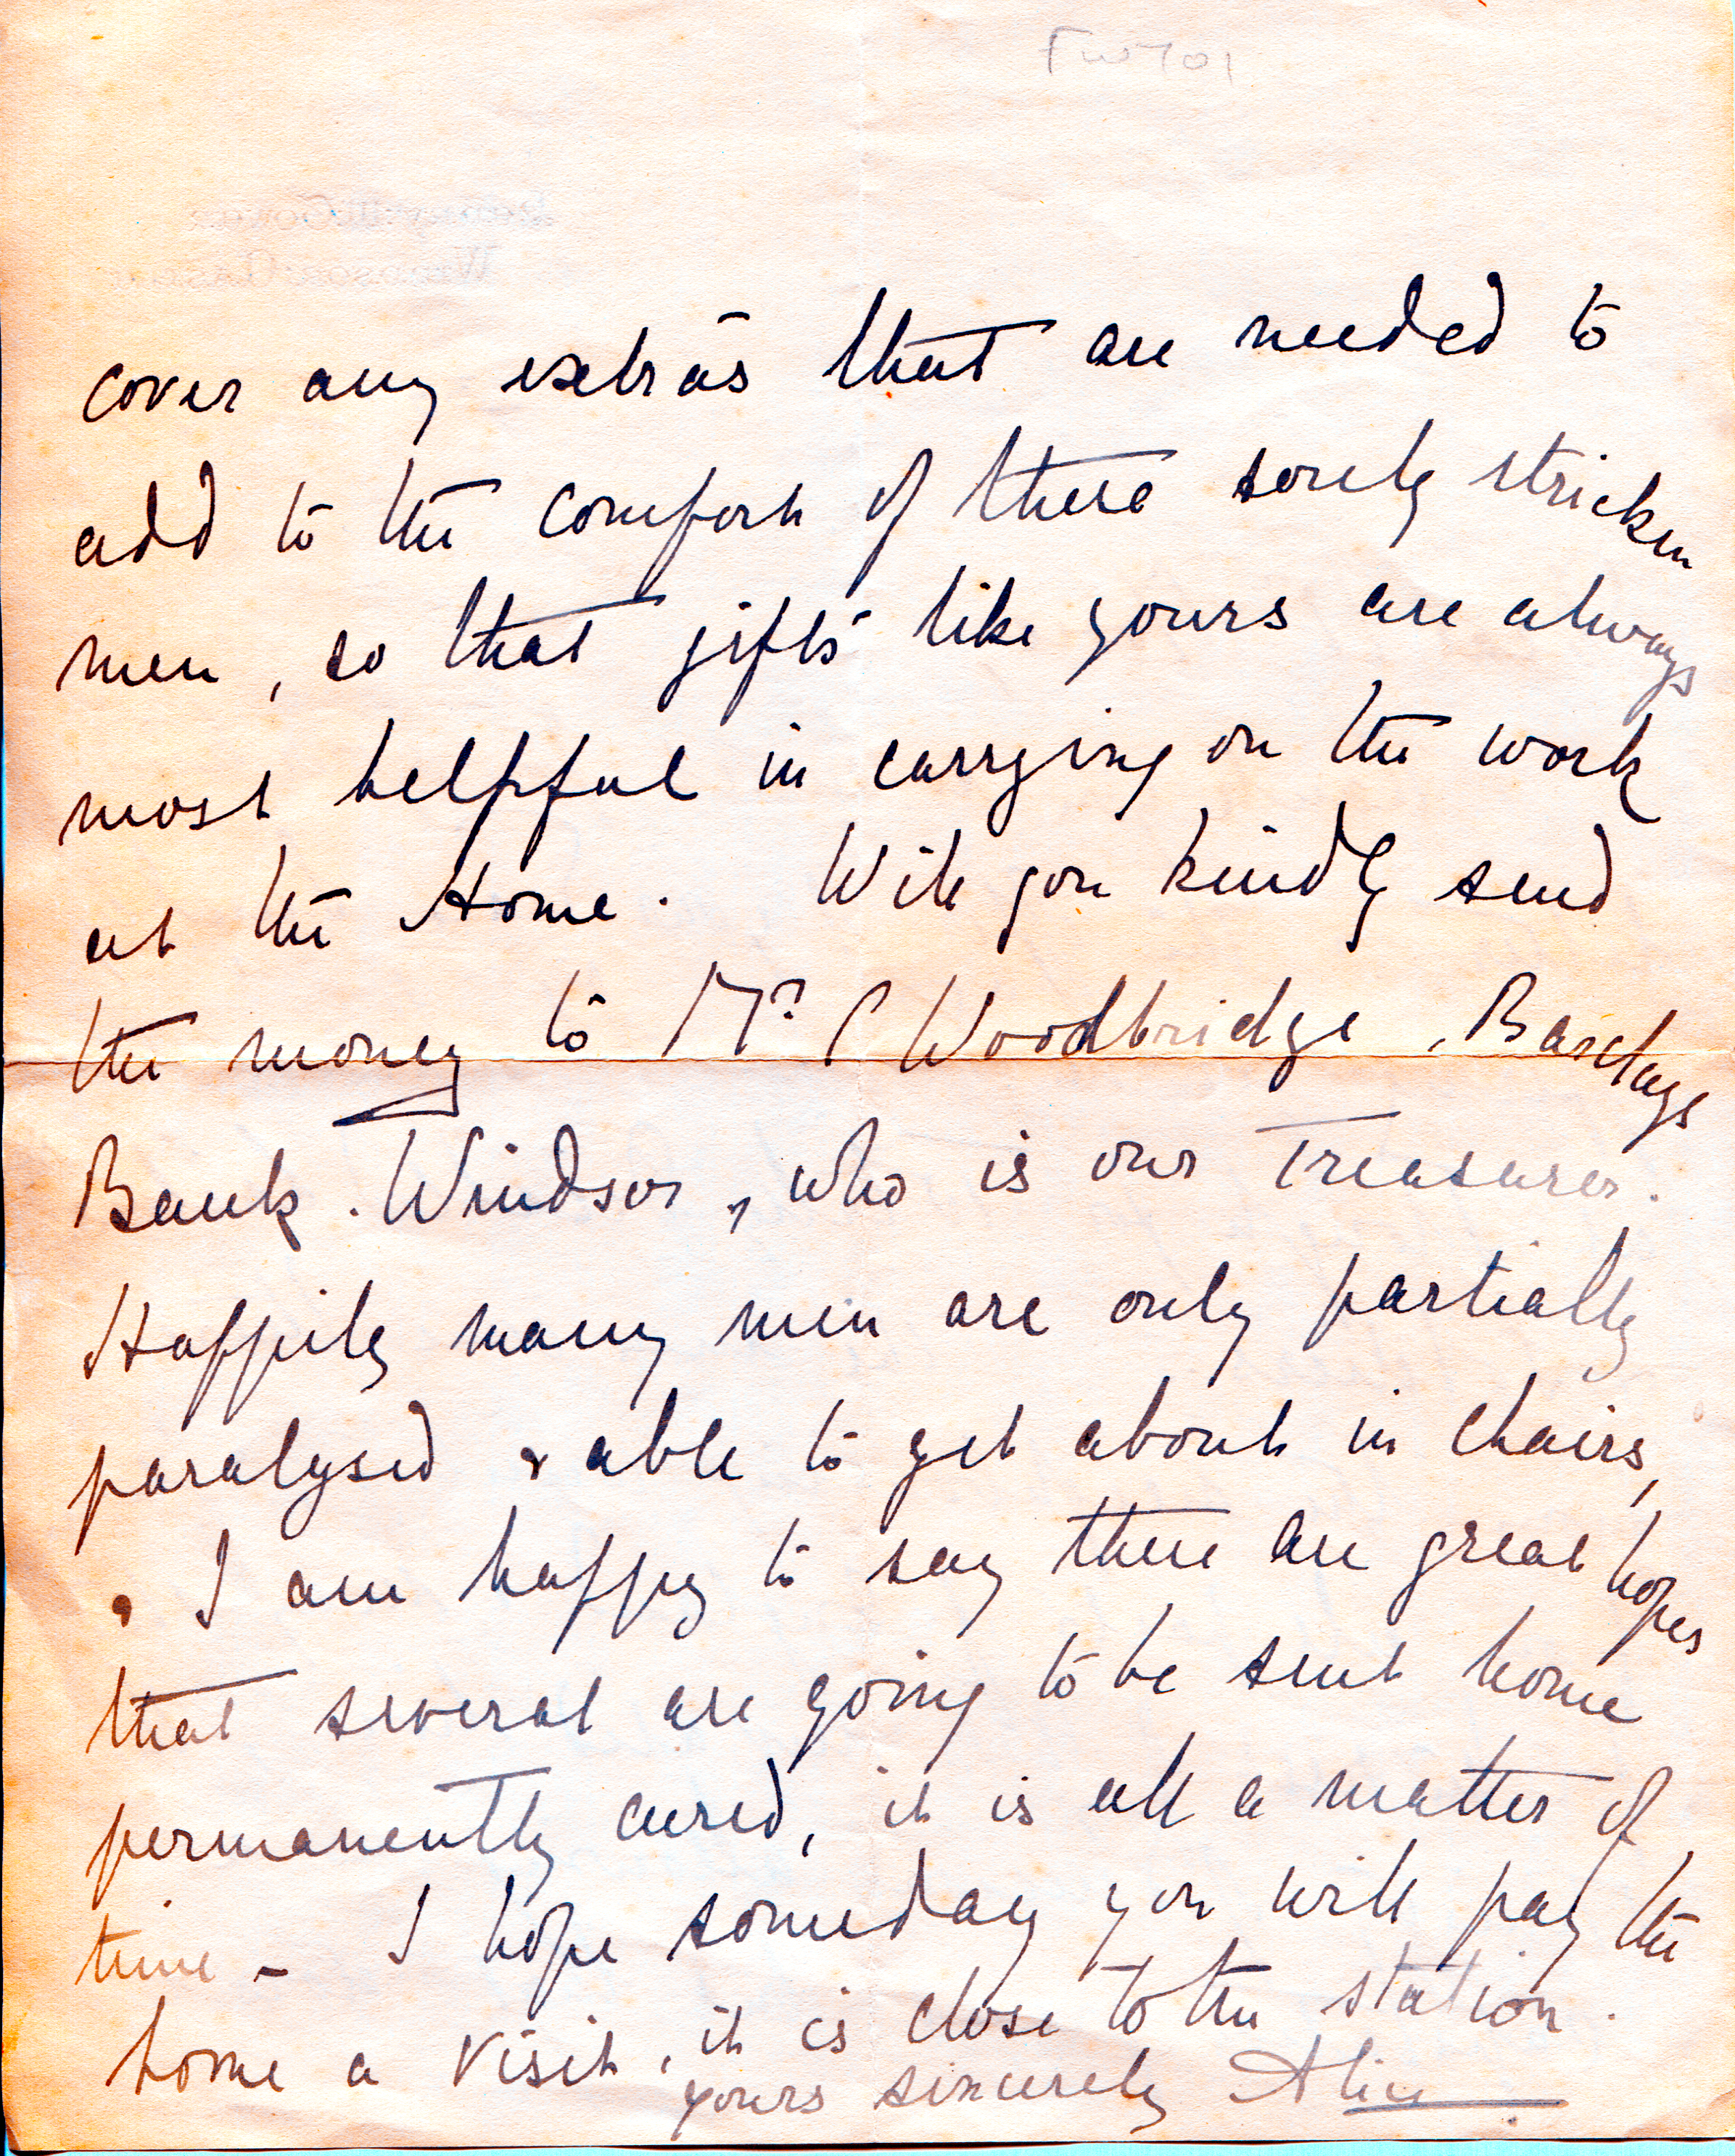 FW701
cover any extras that are needed to
add to the comfort of these sorely stricken
men, so that gifts like yours are always
most helpful in carrying on the work
at the Home. Will you kindly send
the money to Mr C Woodbridge, Barclays
Bank. Windsor, who is our Treasurer.
Happily many men are only partially
paralysed & able to get about in chairs,
& I am happy to say there are great hopes
that several are going to be sent home
permanently cured, it is all a matter of
time - I hope someday you will pay the
home a visit, it is close to the station.
yours sincerely Alice